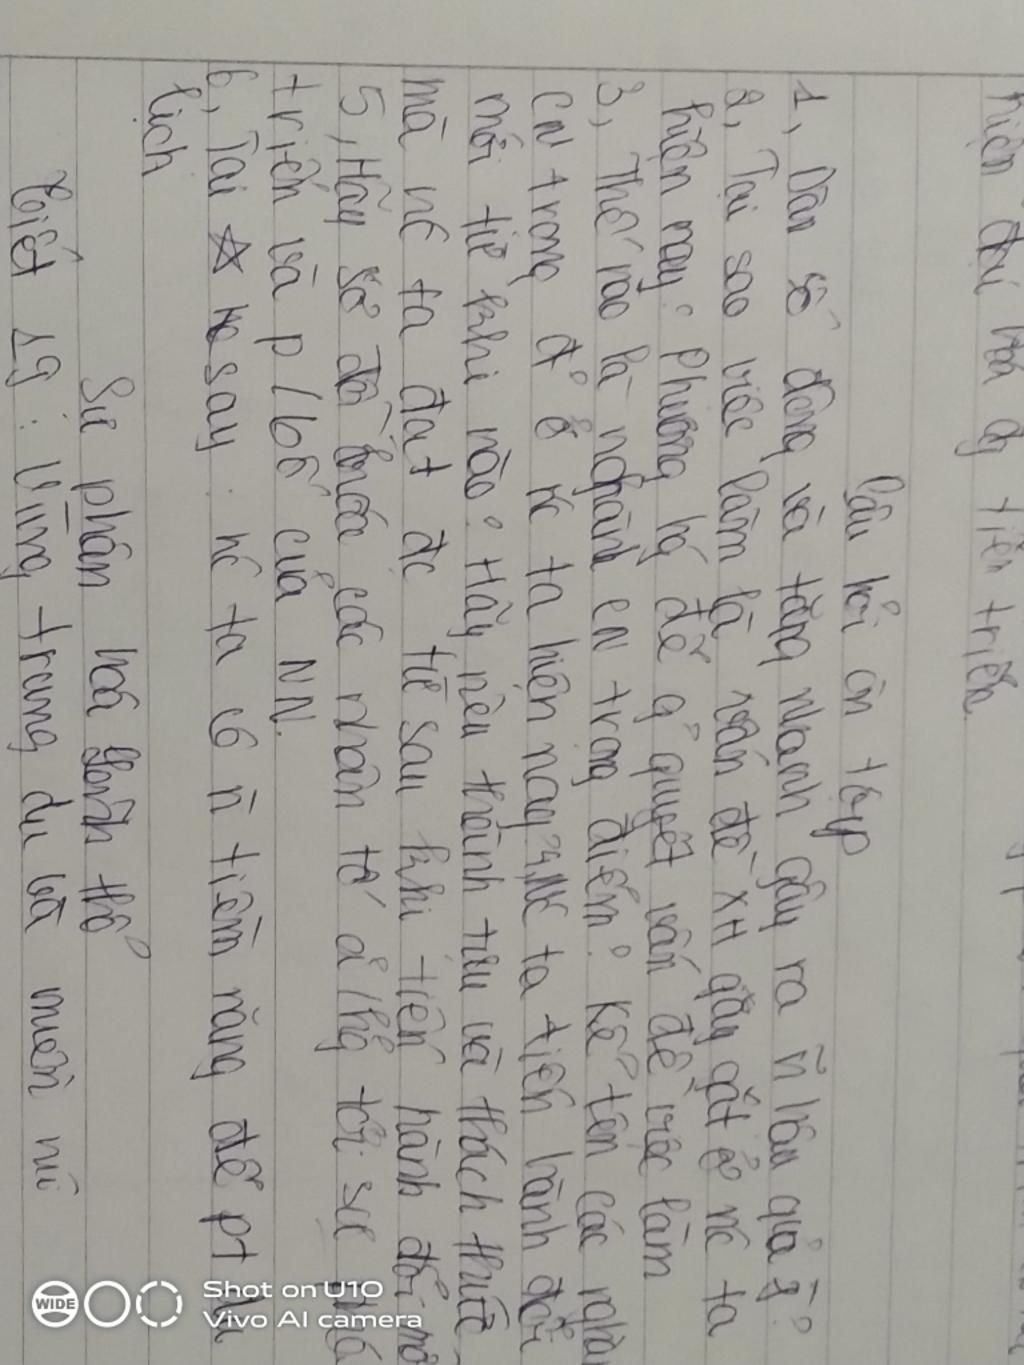 hiện đại hoá đg tiến triển.
Câu hỏi ôn tập
1, Dân số đông và tăng nhanh gây ra n hậu quả gì?
2, Tại sao việc làm là vấn đề XH gay gắt ở nc ta
hiện nay? Phương hg để g quyết vấn đề việc làm
3, Thế nào là nghành CN trong điểm? Kể tên các nghàn
CN trong đ ở nc ta hiện nay? 4, Nc ta tiến hành đổi
mới từ khi nào? Hãy nêu thành tựu và thách thức
mà nc ta đạt đc từ sau khi tiến hành đổi mớ
5, Hãy sơ đồ hoá các nhân tố ả/hg tới sự phá
triển và p/bố của NN.
6, Tại sao nay: nc ta có n tiềm năng để pt du
lịch
Sự phân hoá lãnh thổ
Tiết 19: Vùng trung du và miền núi
Shot on U10
Vivo AI camera
WIDE